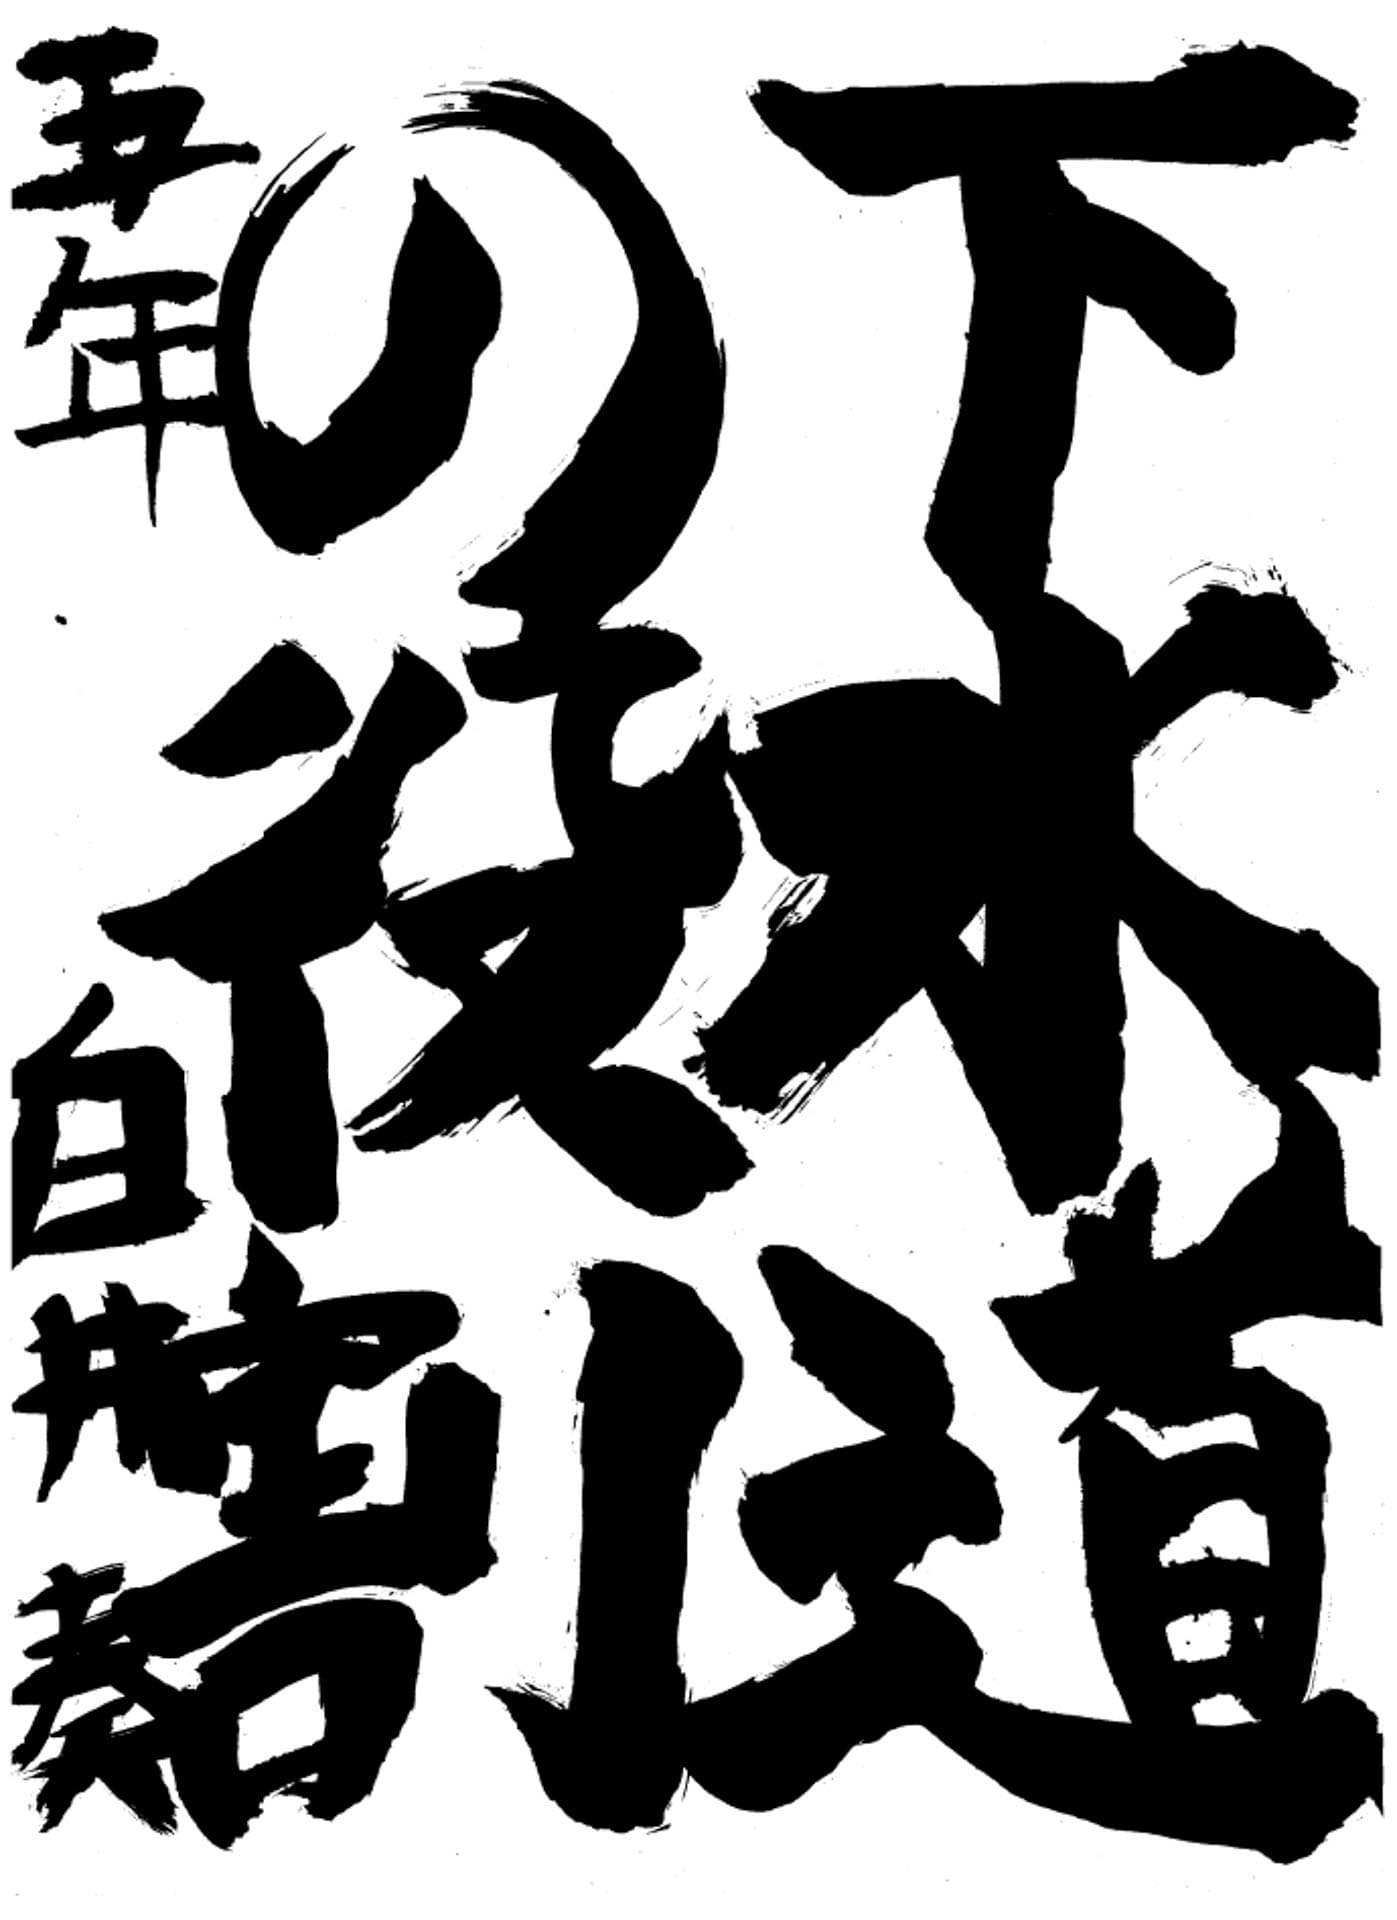 下水道
の役割
五年 白井 奏